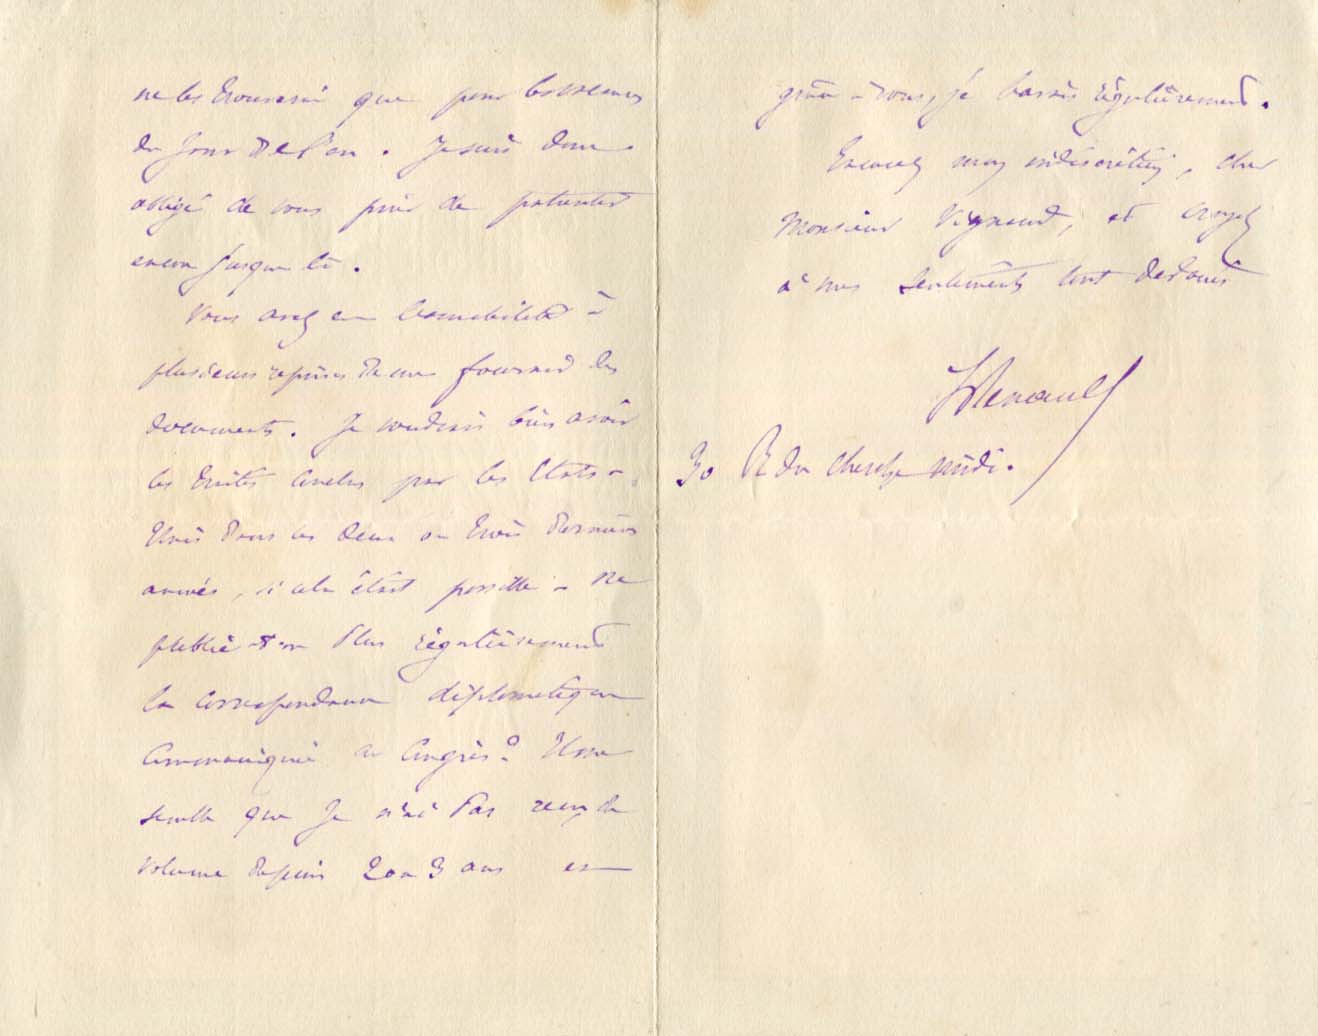 ne les trouverai que pour les vacances
du Jour de l'an. Je suis donc
obligé de vous prier de patienter
encore jusque là.
Vous avez eu l'amabilité à
plusieurs reprises de me fournir des
documents. Je voudrais bien avoir
les traités conclus par les Etats-
Unis dans les deux ou trois dernières
années, si cela était possible. Ne
publie-t-on plus régulièrement
la correspondance diplomatique
communiquée au Congrès? Il me
semble que je n'ai pas reçu de
volume depuis 2 ou 3 ans et
grâce à vous, je l'avais régulièrement.
Excusez mon indiscrétion, cher
Monsieur Vignaud, et croyez
à mes sentiments tout dévoués
L Renault
30 R du Cherche midi.